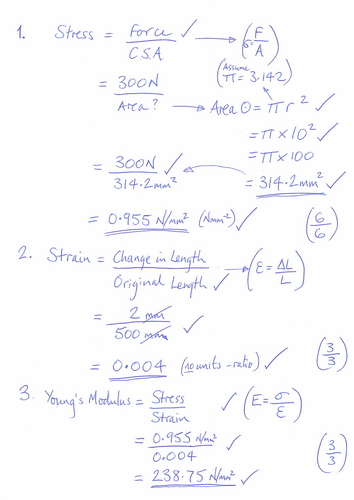 1. Stress = Force / C.S.A. ✓ → (σ = F/A)
(Assume π = 3.142)
= 300N / Area? → Area ⊙ = πr² ✓
= π × 10² ✓
= π × 100
= 300N / 314.2mm² ✓ = 314.2mm² ✓
= 0.955 N/mm² (Nmm⁻²) ✓ (6/6)
2. Strain = Change in Length / Original Length ✓ → (ε = ΔL/L)
= 2 mm / 500 mm ✓
= 0.004 (no units - ratio) ✓ (3/3)
3. Young's Modulus = Stress / Strain ✓ (E = σ/ε)
= 0.955 N/mm² / 0.004 ✓
= 238.75 N/mm² ✓ (3/3)